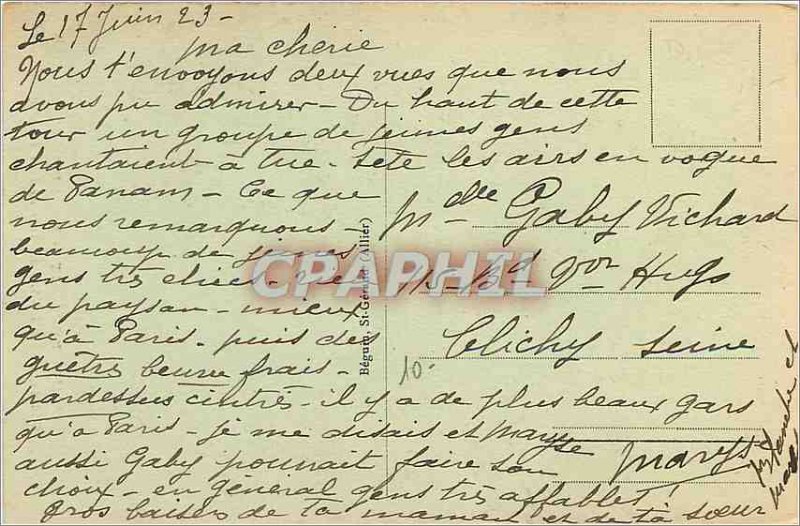 Le 17 Juin 23 -
Ma chérie
Nous t'envoyons deux vues que nous
avons pu admirer - Du haut de cette
tour un groupe de jeunes gens
chantaient à tue-tête les airs en vogue
de Panam - Ce que
nous remarquons -
beaucoup de jeunes
gens très chics -
du paysan - mieux
qu'à Paris - puis des
guêtres beurre frais -
pardessus cintrés - il y a de plus beaux gars
qu'à Paris - je me disais et Maryse
aussi Gaby pourrait faire son
choix - en général gens très affables !
Gros baisers de ta maman et de ta soeur
Maryse
Mlle Gaby Vichard
15 Bd Vor Hugo
Clichy Seine
10-
Béguin, St-Gérand (Allier)
CPAPHIL